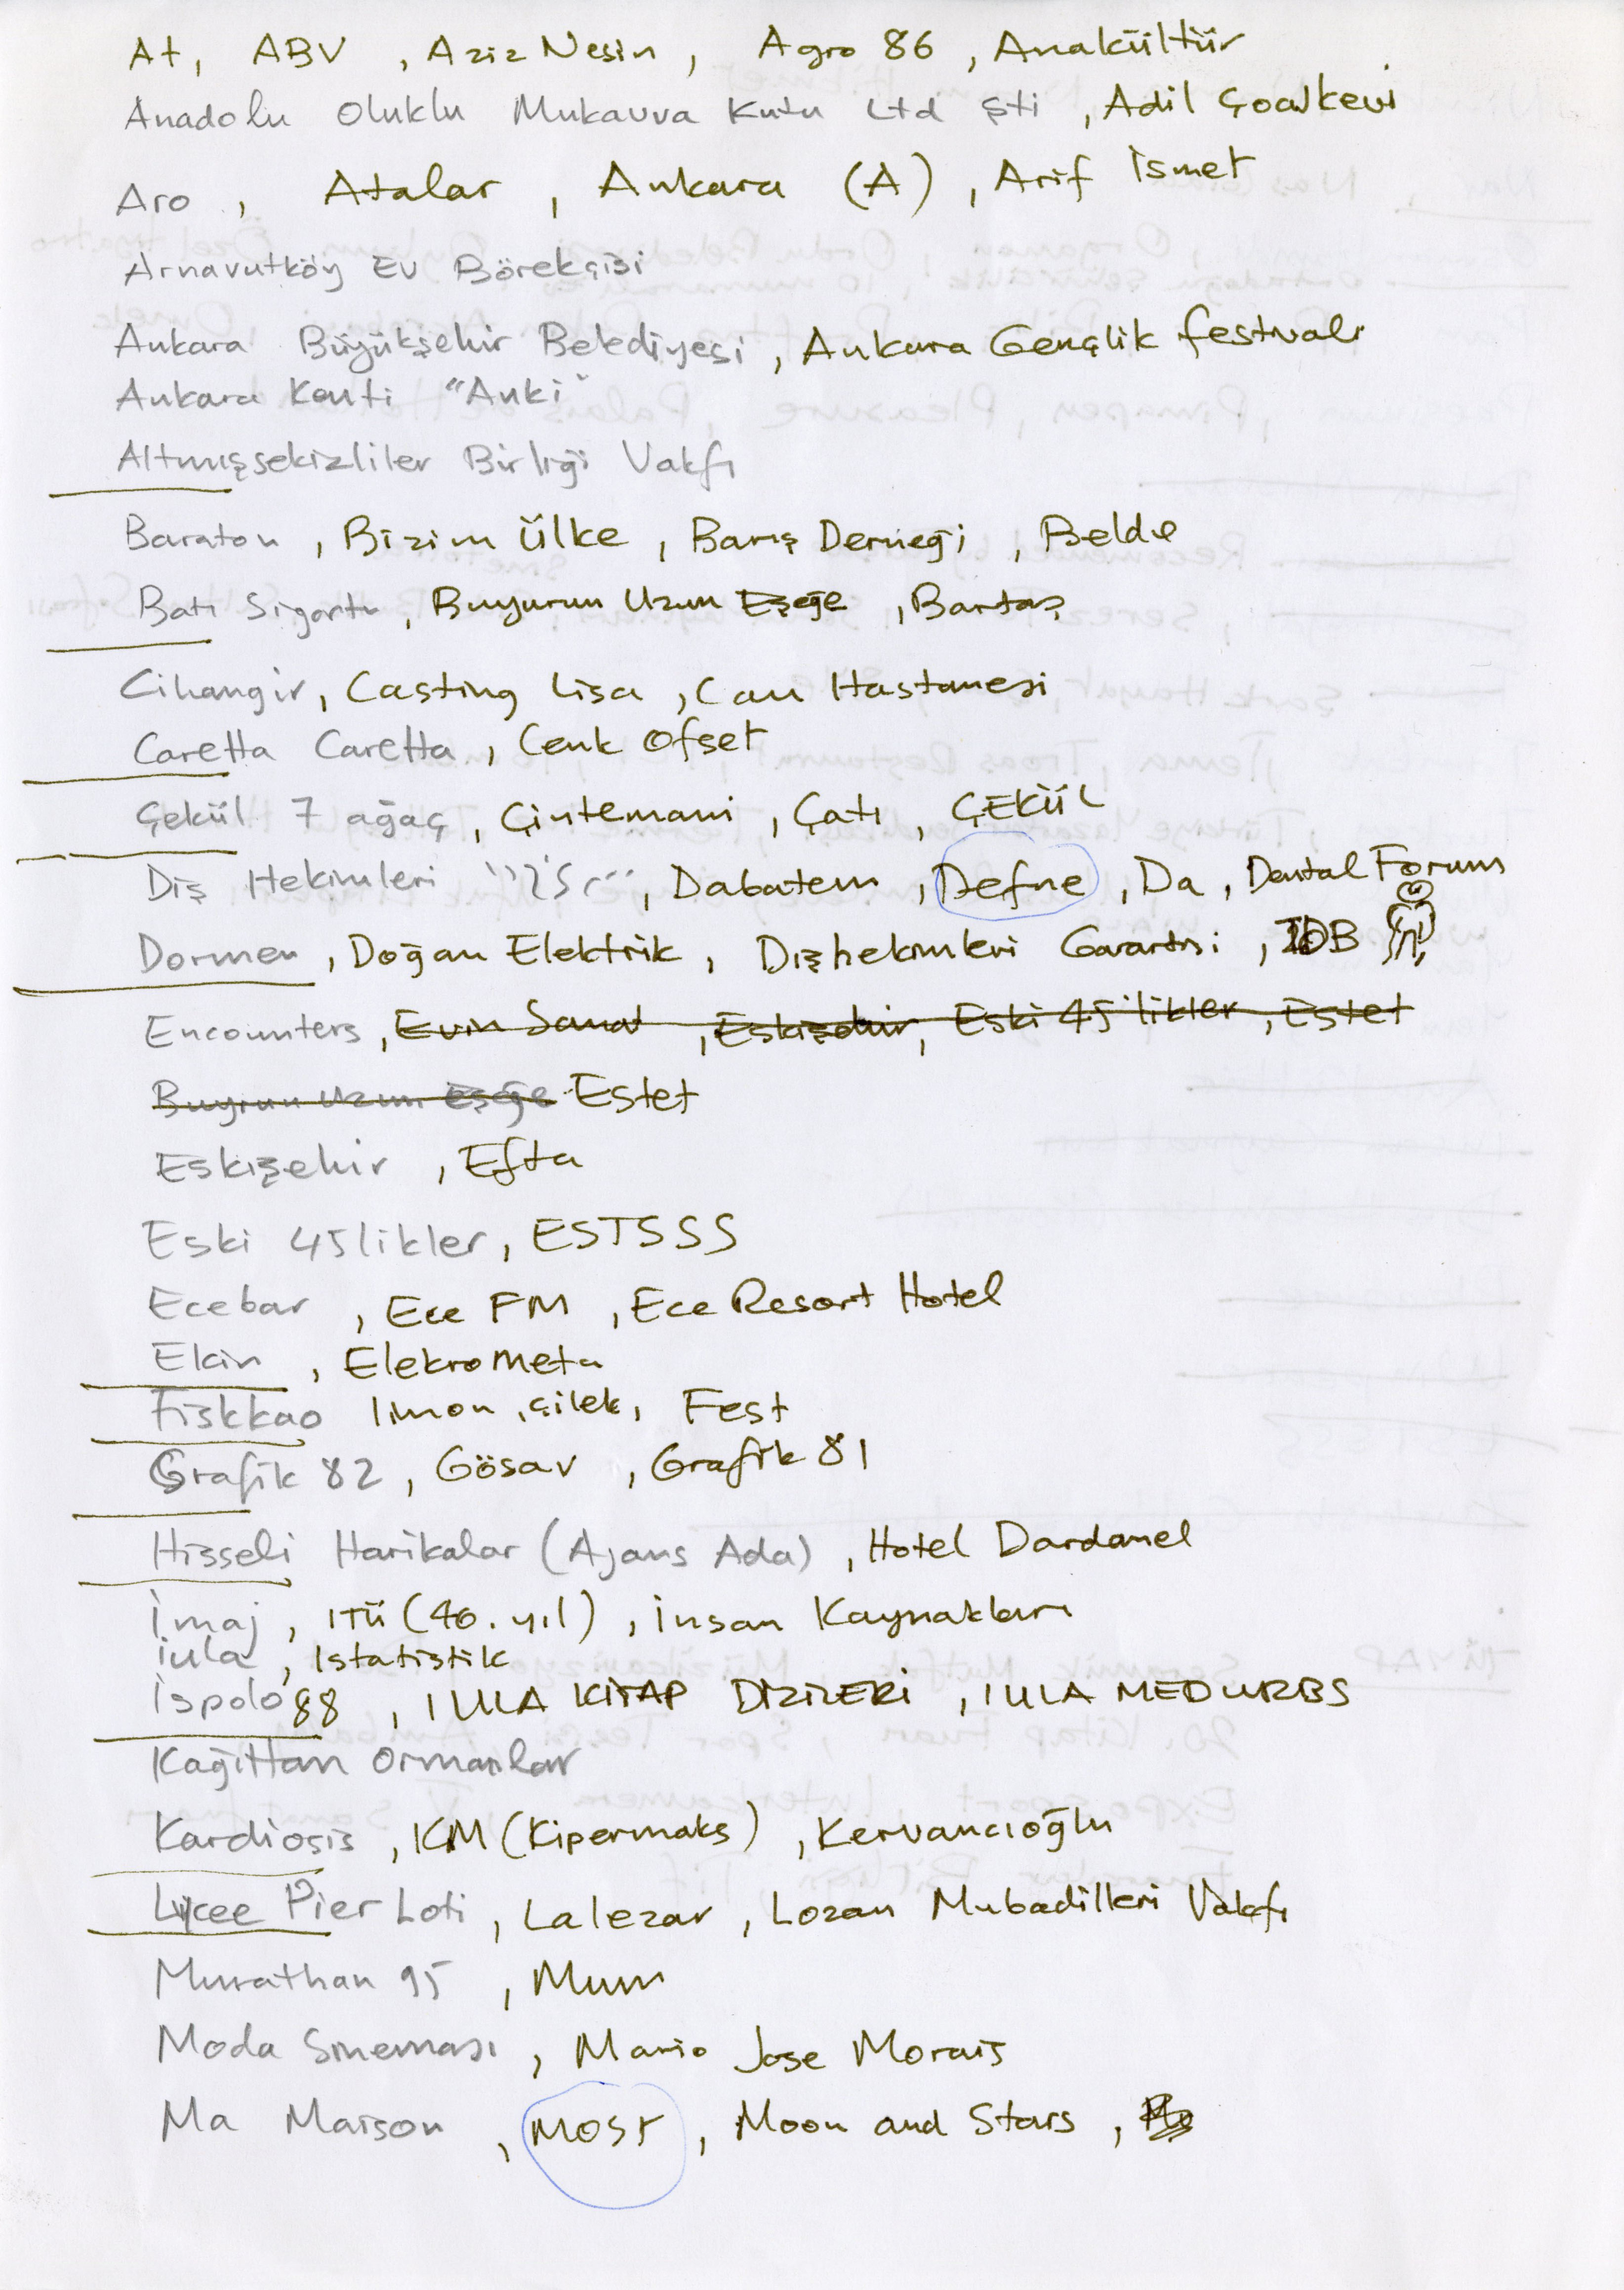 At, ABV, Aziz Nesin, Agro 86, Anakültür
Anadolu Oluklu Mukavva Kutu Ltd Şti, Adil Çocukevi
Aro, Atalar, Ankara (A), Arif İsmet
Arnavutköy Ev Börekçisi
Ankara Büyükşehir Belediyesi, Ankara Gençlik festivali
Ankara Kenti "Anki"
Altmışsekizliler Birliği Vakfı
Baraton, Bizim Ülke, Barış Derneği, Belde
Batı Sigorta, Buyurun Uzun Eşeğe, Bartaş
Cihangir, Casting Lisa, Can Hastanesi
Caretta Caretta, Cenk Ofset
Çekül 7 ağaç, Çintemani, Çatı, ÇEKÜL
Diş Hekimleri, Dabatem, Defne, Da, Dental Forum
Dormen, Doğan Elektrik, Dişhekimleri Garantisi, İDB
Encounters, Evin Sanat, Eskişehir, Eski 45'likler, Estet
Buyrun Uzun Eşeğe Estet
Eskişehir, Efta
Eski 45likler, ESTSSS
Ecebar, Ece FM, Ece Resort Hotel
Ekin, Elekrometa
Fiskkao limon, çilek, Fest
Grafik 82, Gösav, Grafik 81
Hisseli Harikalar (Ajans Ada), Hotel Dardanel
İmaj, İTÜ (40. yıl), İnsan Kaynakları
iula, Istatistik
İspolo 88, IULA KİTAP DİZİLERİ, IULA MEDURBS
Kağıttan Ormanlar
Kardiosis, KM (Kipermaks), Kervancıoğlu
Lycee Pier Loti, Lalezar, Lozan Mubadilleri Vakfı
Murathan 95, Mum
Moda Sineması, Mario Jose Morais
Ma Maison, MOST, Moon and Stars,